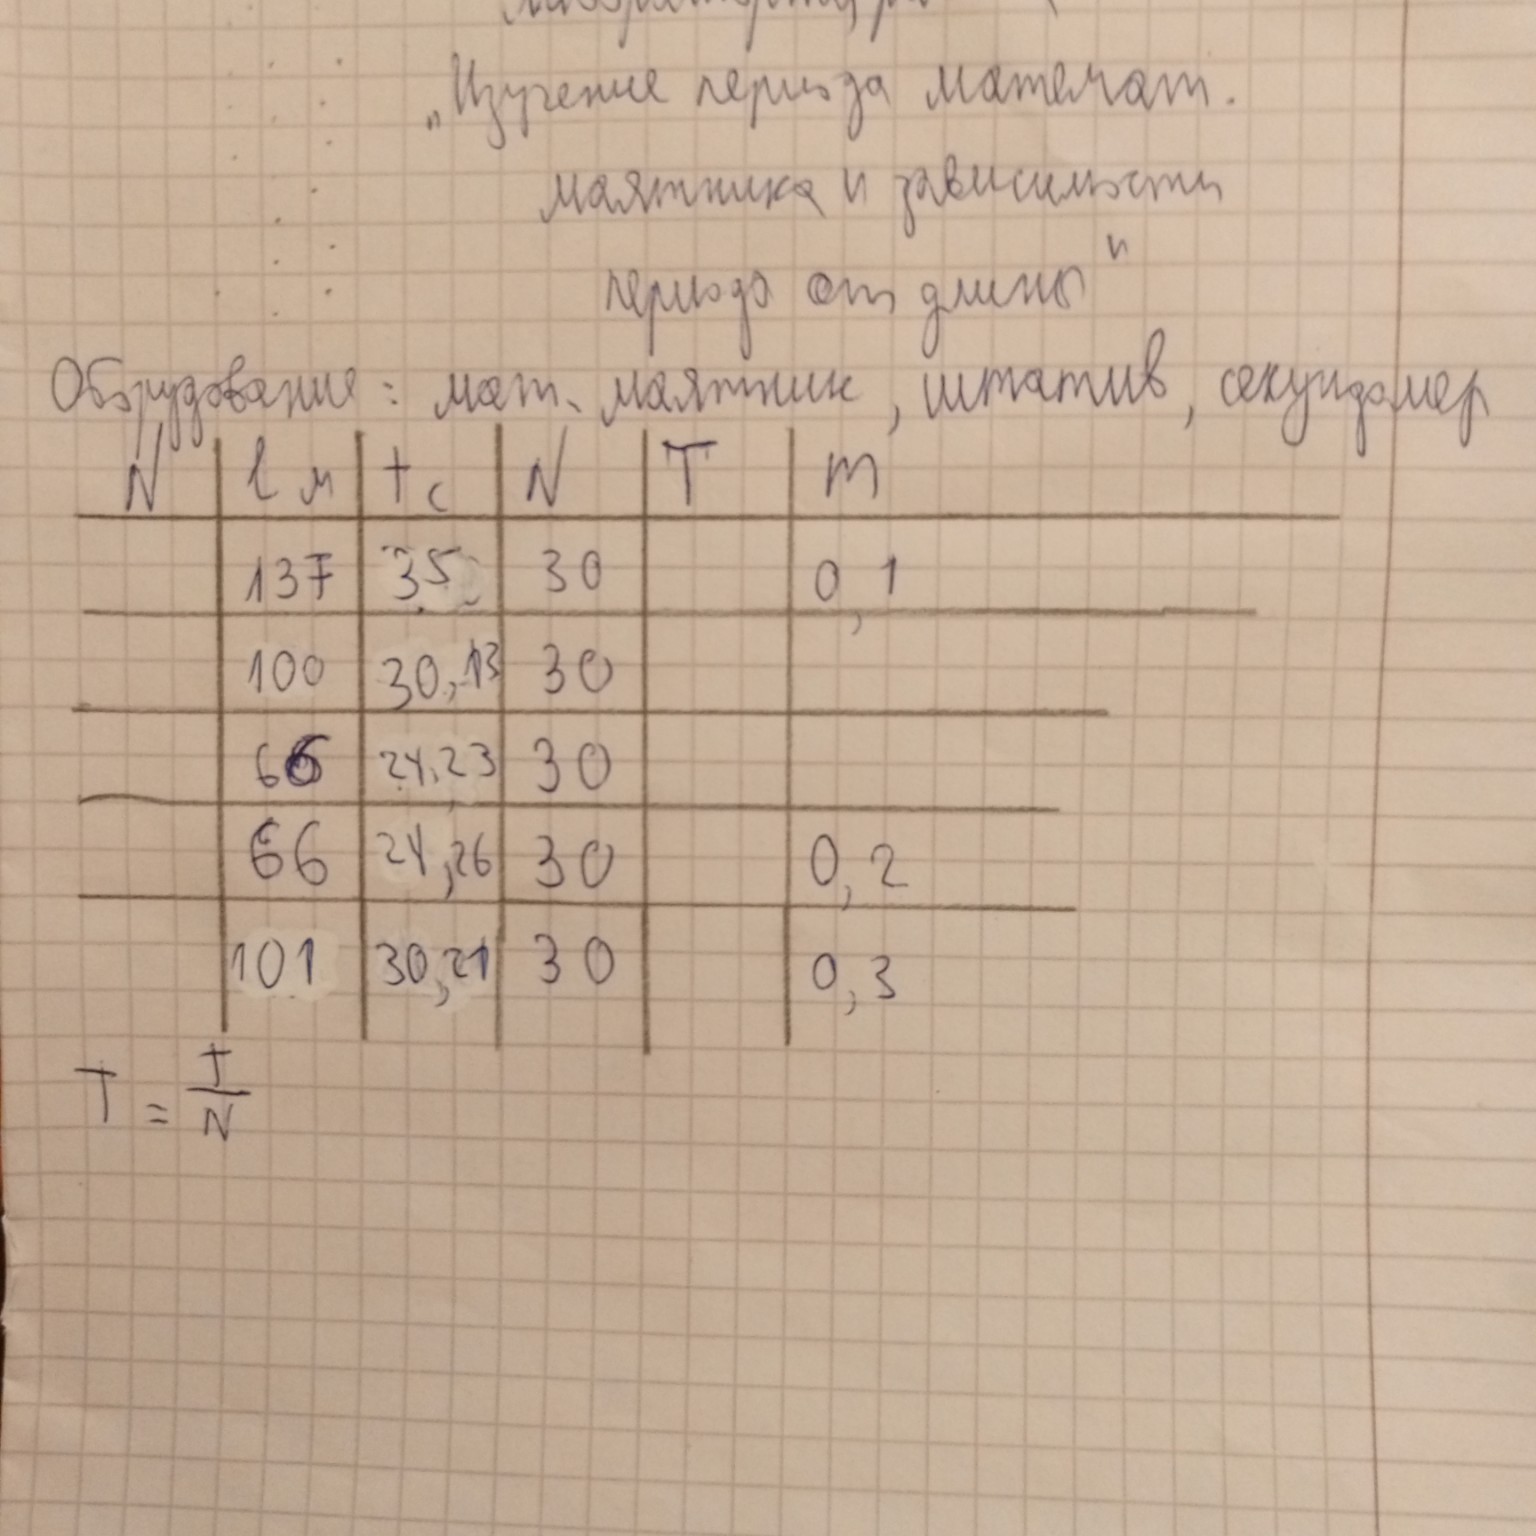 „Изучение периода математ.
маятника и зависимости
периода от длины"
Оборудование: мат. маятник, штатив, секундомер
N l м t с N T m
137 35 30 0,1
100 30,13 30
66 24,23 30
66 24,26 30 0,2
101 30,21 30 0,3
T = t/N